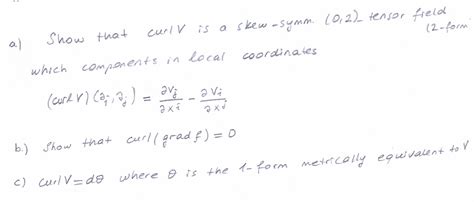 a) Show that curl V is a skew-symm. (0,2)-tensor field
(2-form
which components in local coordinates
(curl V)(∂i, ∂j) = ∂Vj/∂xi - ∂Vi/∂xj
b.) Show that curl(grad f) = 0
c) curl V = dθ where θ is the 1-form metrically equivalent to V